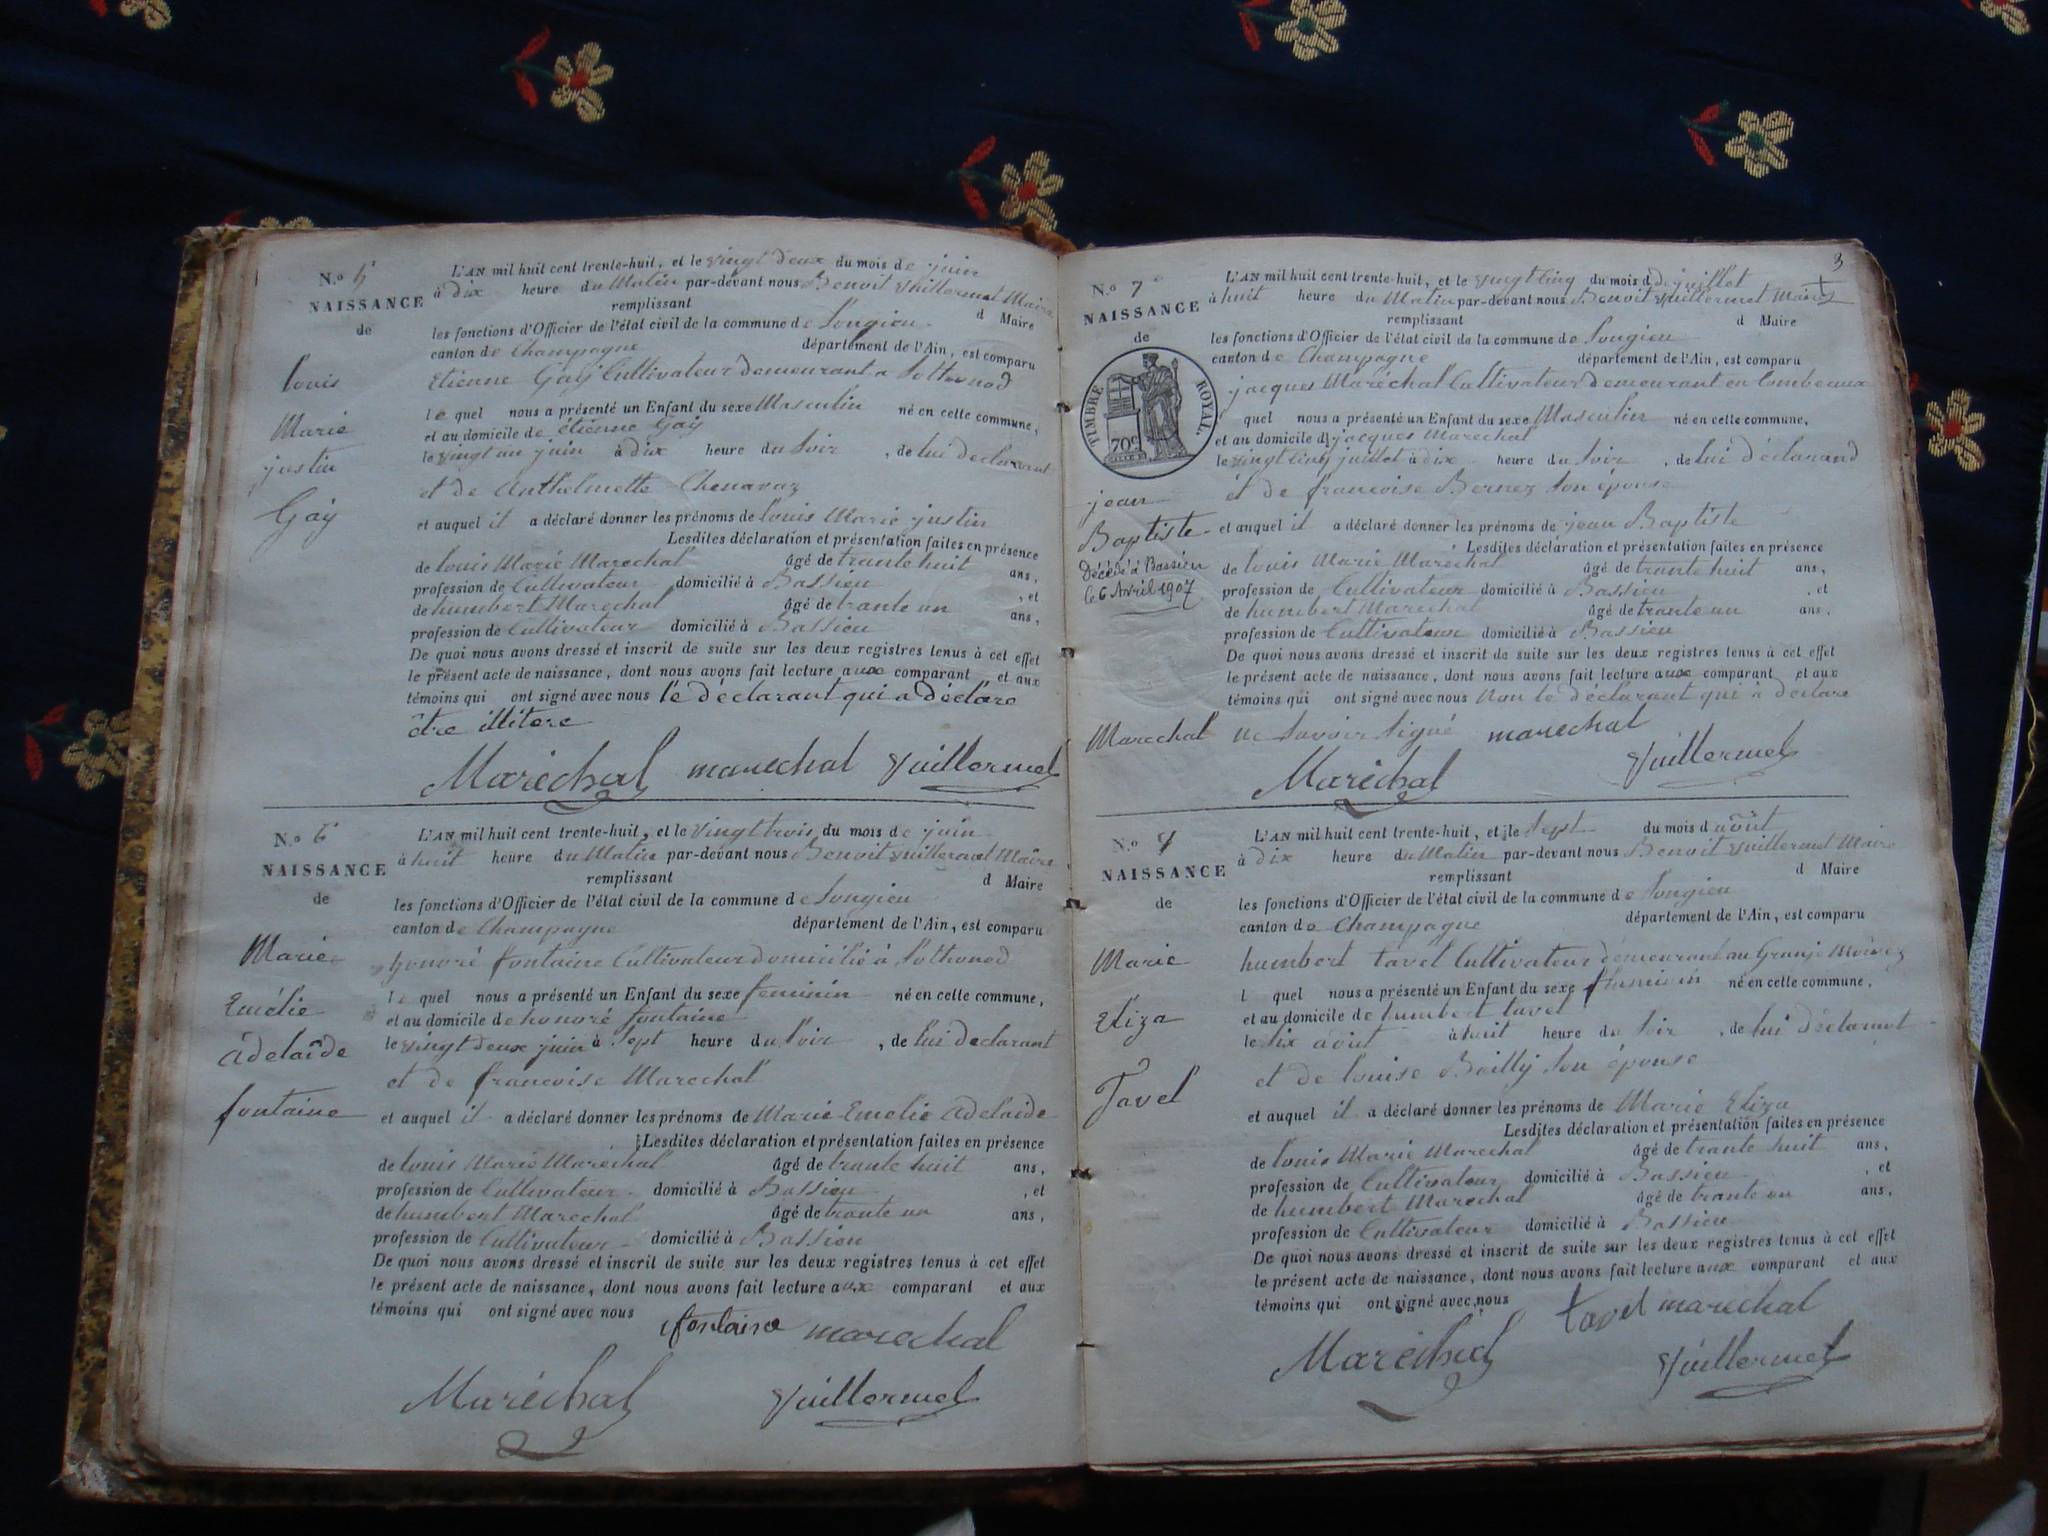 N.o 5
NAISSANCE
de
Louis
Marie
justin
Gay
L'AN mil huit cent trente-huit, et le vingt deux du mois de juin
à dix heure du Matin par-devant nous Benoit Vuillermet Maire
remplissant d Maire
les fonctions d'Officier de l'état civil de la commune de Songieu
canton de Champagne département de l'Ain, est comparu
Etienne Gay Cultivateur demeurant a Sothonod
le quel nous a présenté un Enfant du sexe Masculin né en cette commune,
et au domicile de étienne Gay
le vingt un juin à dix heure du Soir, de lui declarant
et de Anthelmette Chenavaz
et auquel il a déclaré donner les prénoms de Louis Marie justin
Lesdites déclaration et présentation faites en présence
de Louis Marie Marechal âgé de trante huit ans,
profession de Cultivateur domicilié à Bassieu, et
de humbert Marechal âgé de trante un ans,
profession de Cultivateur domicilié à Bassieu
De quoi nous avons dressé et inscrit de suite sur les deux registres tenus à cet effet
le présent acte de naissance, dont nous avons fait lecture aux comparant et aux
témoins qui ont signé avec nous le déclarant qui a déclare
être illitere
Maréchal marechal Vuillermet
N.o 6
NAISSANCE
de
Marie
Emélie
adelaïde
fontaine
L'AN mil huit cent trente-huit, et le vingt trois du mois de juin
à huit heure du Matin par-devant nous Benoit Vuillermet Maire
remplissant d Maire
les fonctions d'Officier de l'état civil de la commune de Songieu
canton de Champagne département de l'Ain, est comparu
honoré fontaine Cultivateur domicilié à Sothonod
le quel nous a présenté un Enfant du sexe feminin né en cette commune,
et au domicile de honoré fontaine
le vingt deux juin à Sept heure du Soir, de lui declarant
et de francoise Marechal
et auquel il a déclaré donner les prénoms de Marie Emelie adelaide
Lesdites déclaration et présentation faites en présence
de Louis Marie Maréchal âgé de trante huit ans,
profession de Cultivateur domicilié à Bassieu, et
de humbert Marechal âgé de trante un ans,
profession de Cultivateur domicilié à Bassieu
De quoi nous avons dressé et inscrit de suite sur les deux registres tenus à cet effet
le présent acte de naissance, dont nous avons fait lecture aux comparant et aux
témoins qui ont signé avec nous
fontaine marechal
Maréchal Vuillermet
3
N.o 7
NAISSANCE
de
TIMBRE ROYAL.
70c
jean
Baptiste
Décédé à Bassieu
le 6 Avril 1907
Marechal
L'AN mil huit cent trente-huit, et le vingt cinq du mois d de juillet
à huit heure du Matin par-devant nous Benoit Vuillermet Maire
remplissant d Maire
les fonctions d'Officier de l'état civil de la commune de Songieu
canton de Champagne département de l'Ain, est comparu
jacques Maréchal Cultivateur demeurant en Combeaux
quel nous a présenté un Enfant du sexe Masculin né en cette commune,
et au domicile d jacques Marechal
le vingt cinq juillet à dix heure du Soir, de lui déclarand
et de francoise Bernez Son épouse
et auquel il a déclaré donner les prénoms de jean Baptiste
Lesdites déclaration et présentation faites en présence
de Louis Marie Maréchal âgé de trante huit ans,
profession de Cultivateur domicilié à Bassieu, et
de humbert Marechal âgé de trante un ans,
profession de Cultivateur domicilié à Bassieu
De quoi nous avons dressé et inscrit de suite sur les deux registres tenus à cet effet
le présent acte de naissance, dont nous avons fait lecture aux comparant et aux
témoins qui ont signé avec nous Non le déclarant qui à déclare
ne Savoir Signé marechal
Maréchal Vuillermet
N.o
NAISSANCE
de
Marie
Eliza
Tavel
L'AN mil huit cent trente-huit, et le Sept du mois d août
à dix heure du Matin par-devant nous Benoit Vuillermet Maire
remplissant d Maire
les fonctions d'Officier de l'état civil de la commune de Songieu
canton de Champagne département de l'Ain, est comparu
humbert tavel Cultivateur demeurant au Granje
l quel nous a présenté un Enfant du sexe né en cette commune,
et au domicile de humbert tavel
le Six août à huit heure du Soir, de lui déclarant
et de Louise Bailly Son épouse
et auquel il a déclaré donner les prénoms de Marie Eliza
Lesdites déclaration et présentation faites en présence
de Louis Marie Marechal âgé de trante huit ans,
profession de Cultivateur domicilié à Bassieu, et
de humbert Marechal âgé de trante un ans,
profession de Cultivateur domicilié à Bassieu
De quoi nous avons dressé et inscrit de suite sur les deux registres tenus à cet effet
le présent acte de naissance, dont nous avons fait lecture aux comparant et aux
témoins qui ont signé avec nous tavel marechal
Maréchal Vuillermet